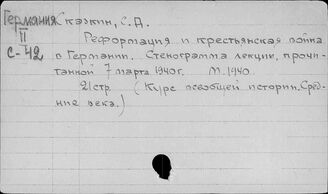 Германия Сказкин, С. Д.
II
С-42
Реформация и крестьянская война
в Германии. Стенограмма лекции, прочи-
танной 7 марта 1940г. М. 1940.
21стр. (Курс всеобщей истории. Сред-
ние века.)